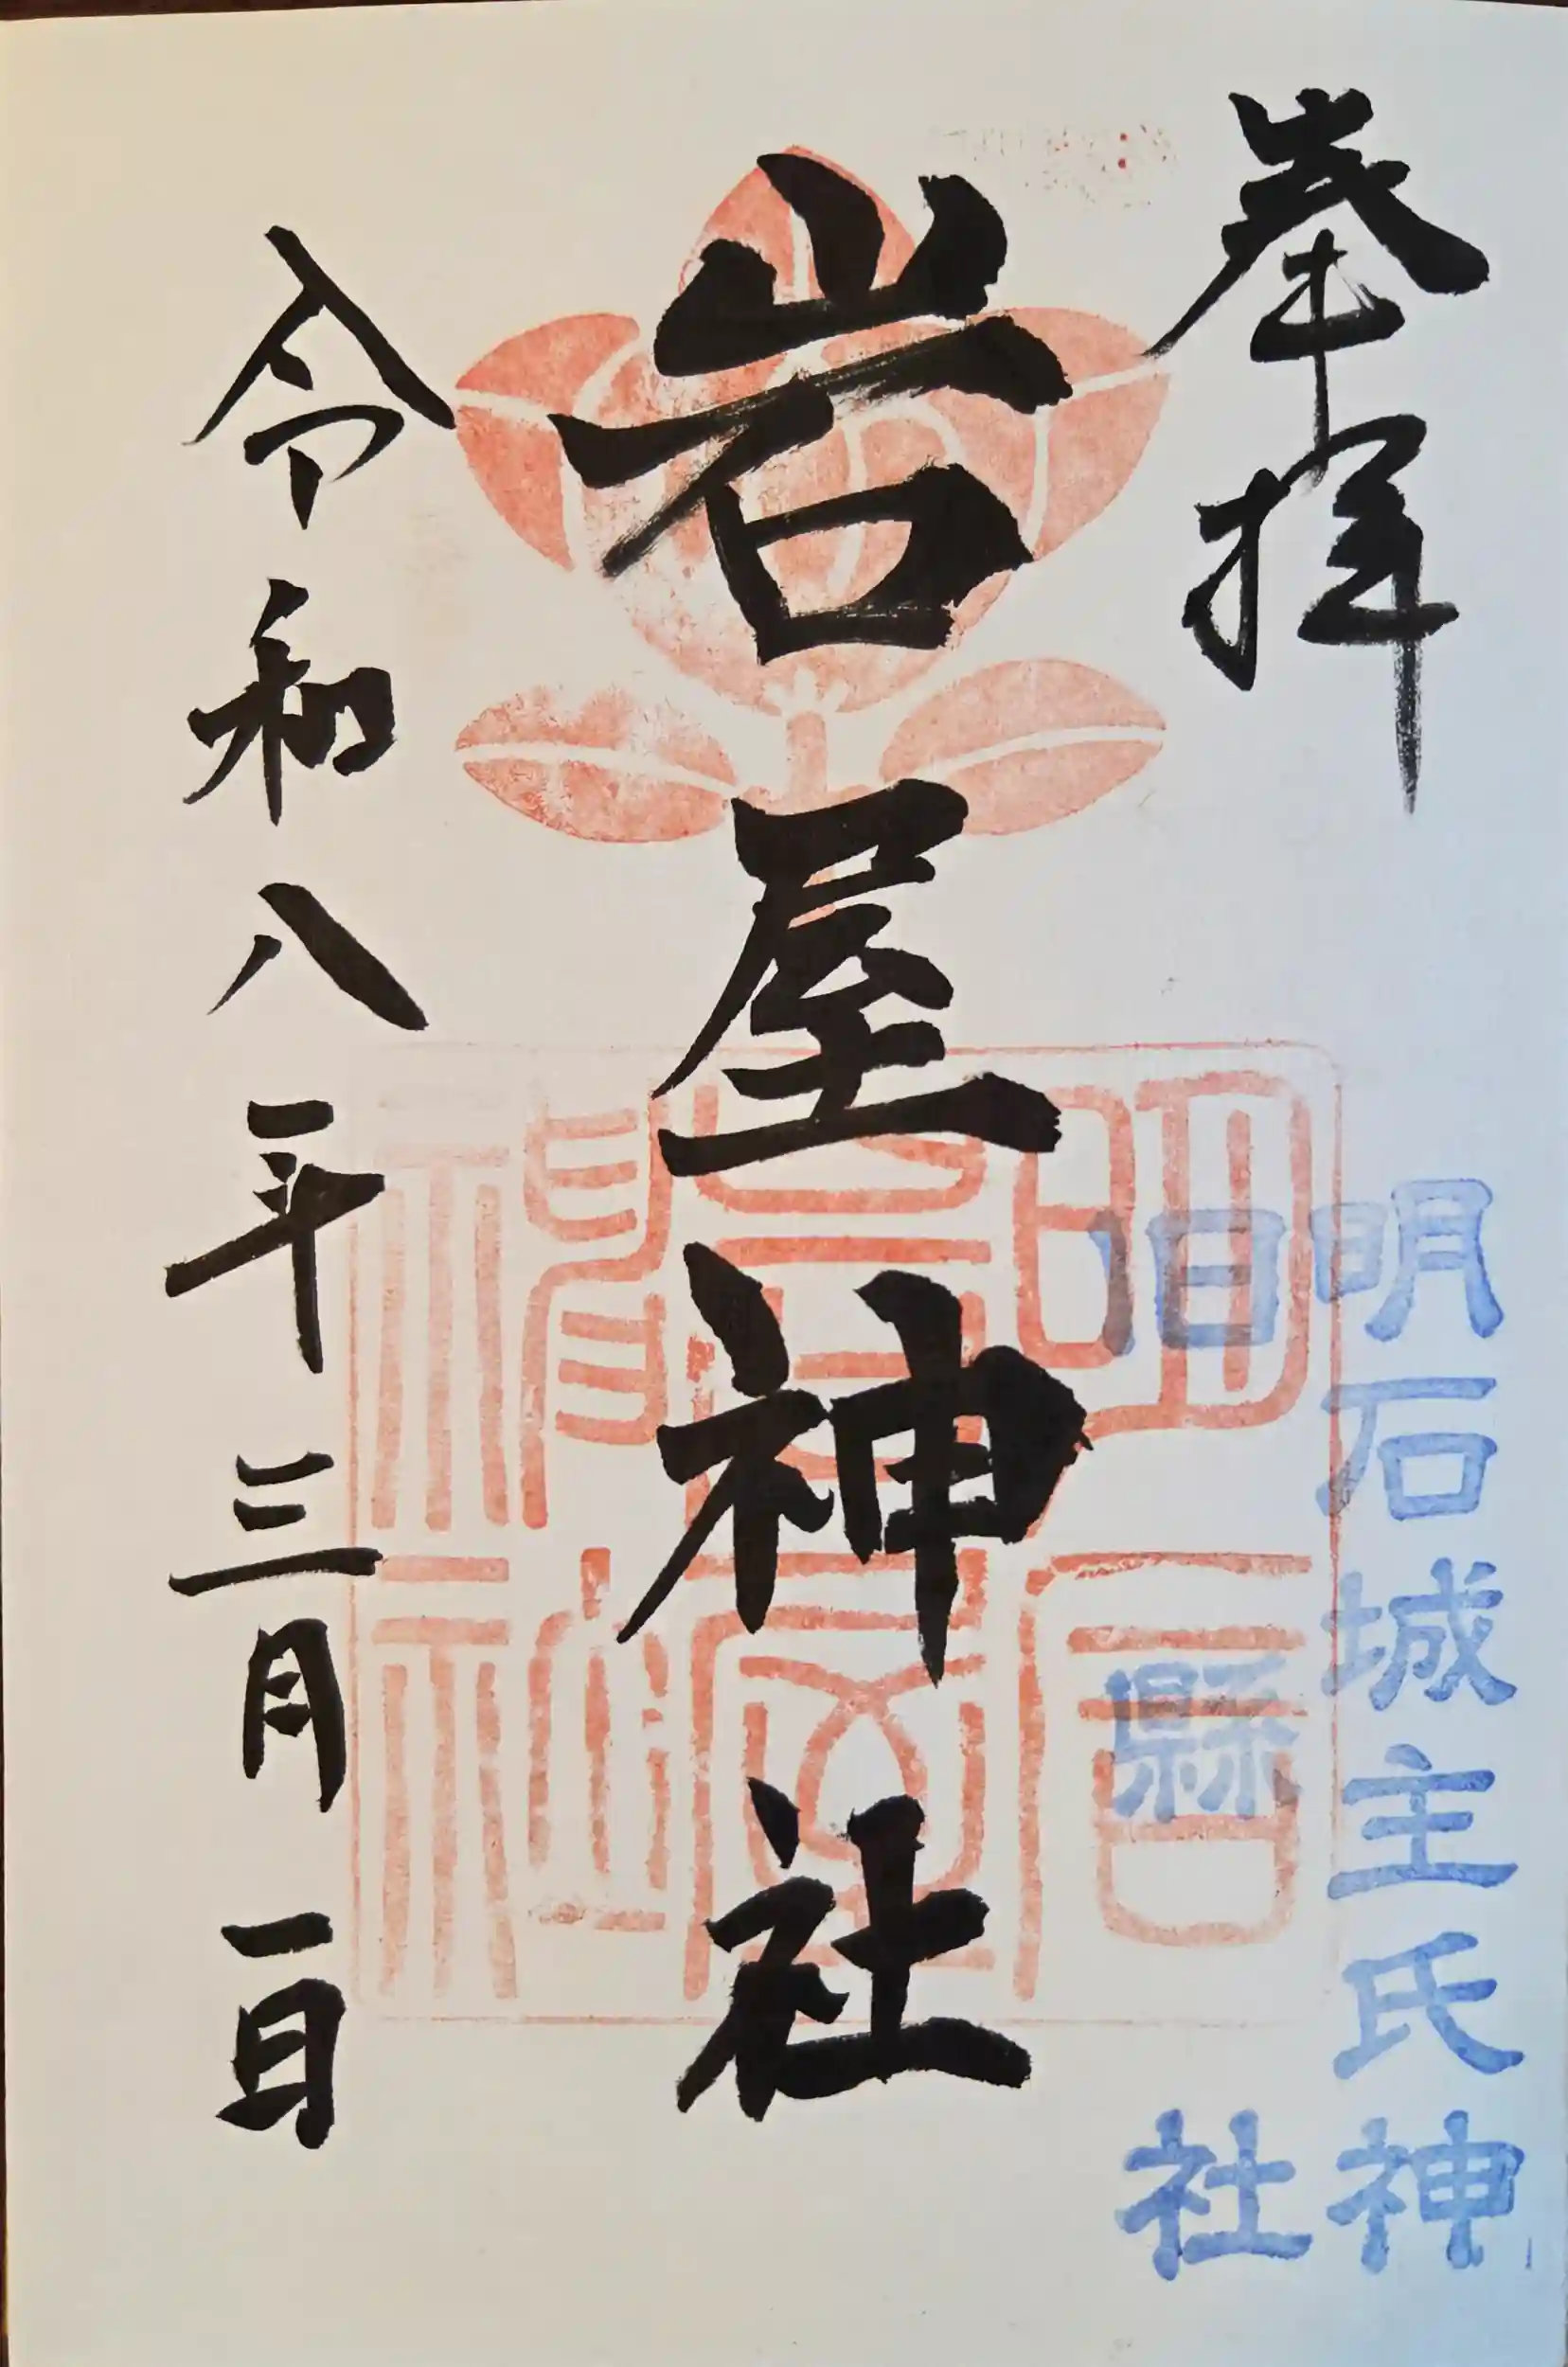 奉拝
明石城主氏神
旧縣社
岩屋神社
明石
神社
令和八年三月一日